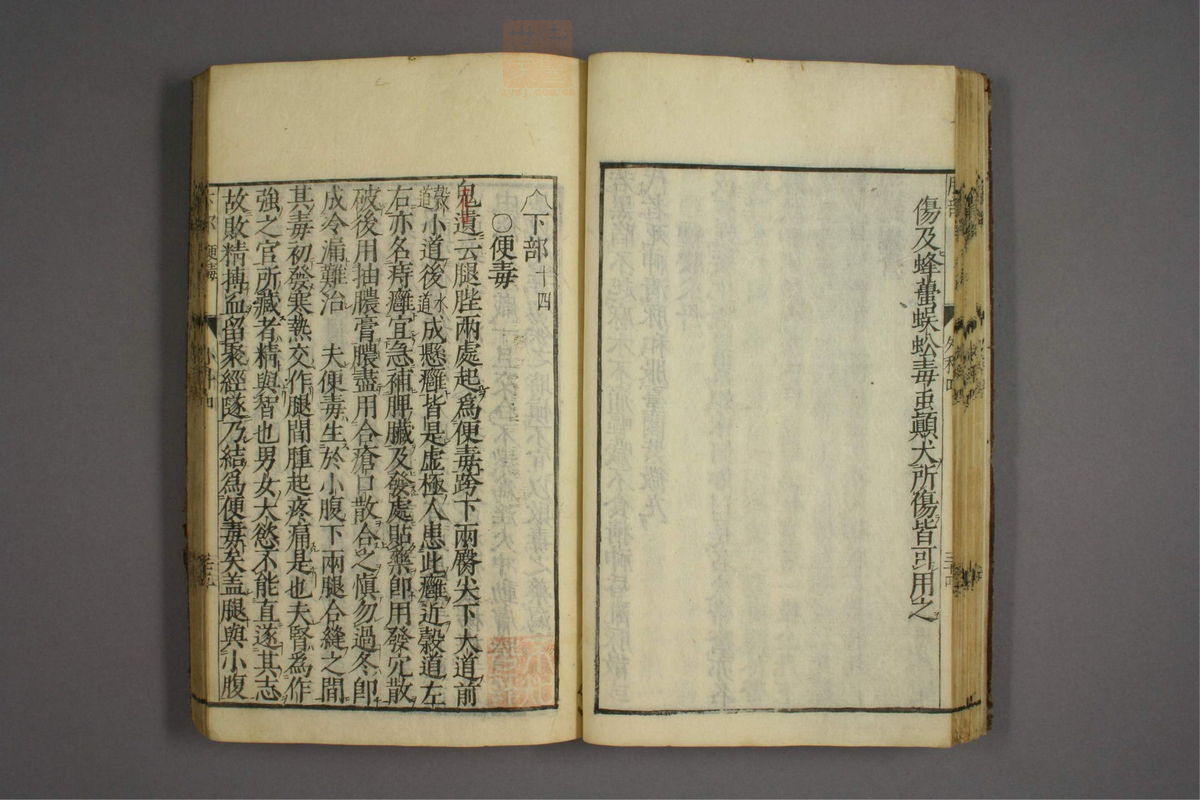 傷及蜂蠆蜈蚣毒䖝顛犬所傷皆可用之
下部十四
○便毒
鬼遺云腿䏶兩處起爲便毒跨下兩臋尖下大道前
小道後成懸癰皆是虛極人患此癰近穀道左
穀道 水道
右亦名痔癰宜急補脾臓及發處貼藥卽用發穴散
破後用抽膿膏膿盡用合瘡口散合之愼勿過冬卽
成冷漏難治 夫便毒生於小腹下兩腿合縫之間
其毒初發寒熱交作腿間腫起疼痛是也夫腎爲作
強之官所藏者精與智也男女大慾不能直遂其志
故敗精搏血留聚經隧乃結爲便毒矣盖腿與小腹
下部 便毒
外科四